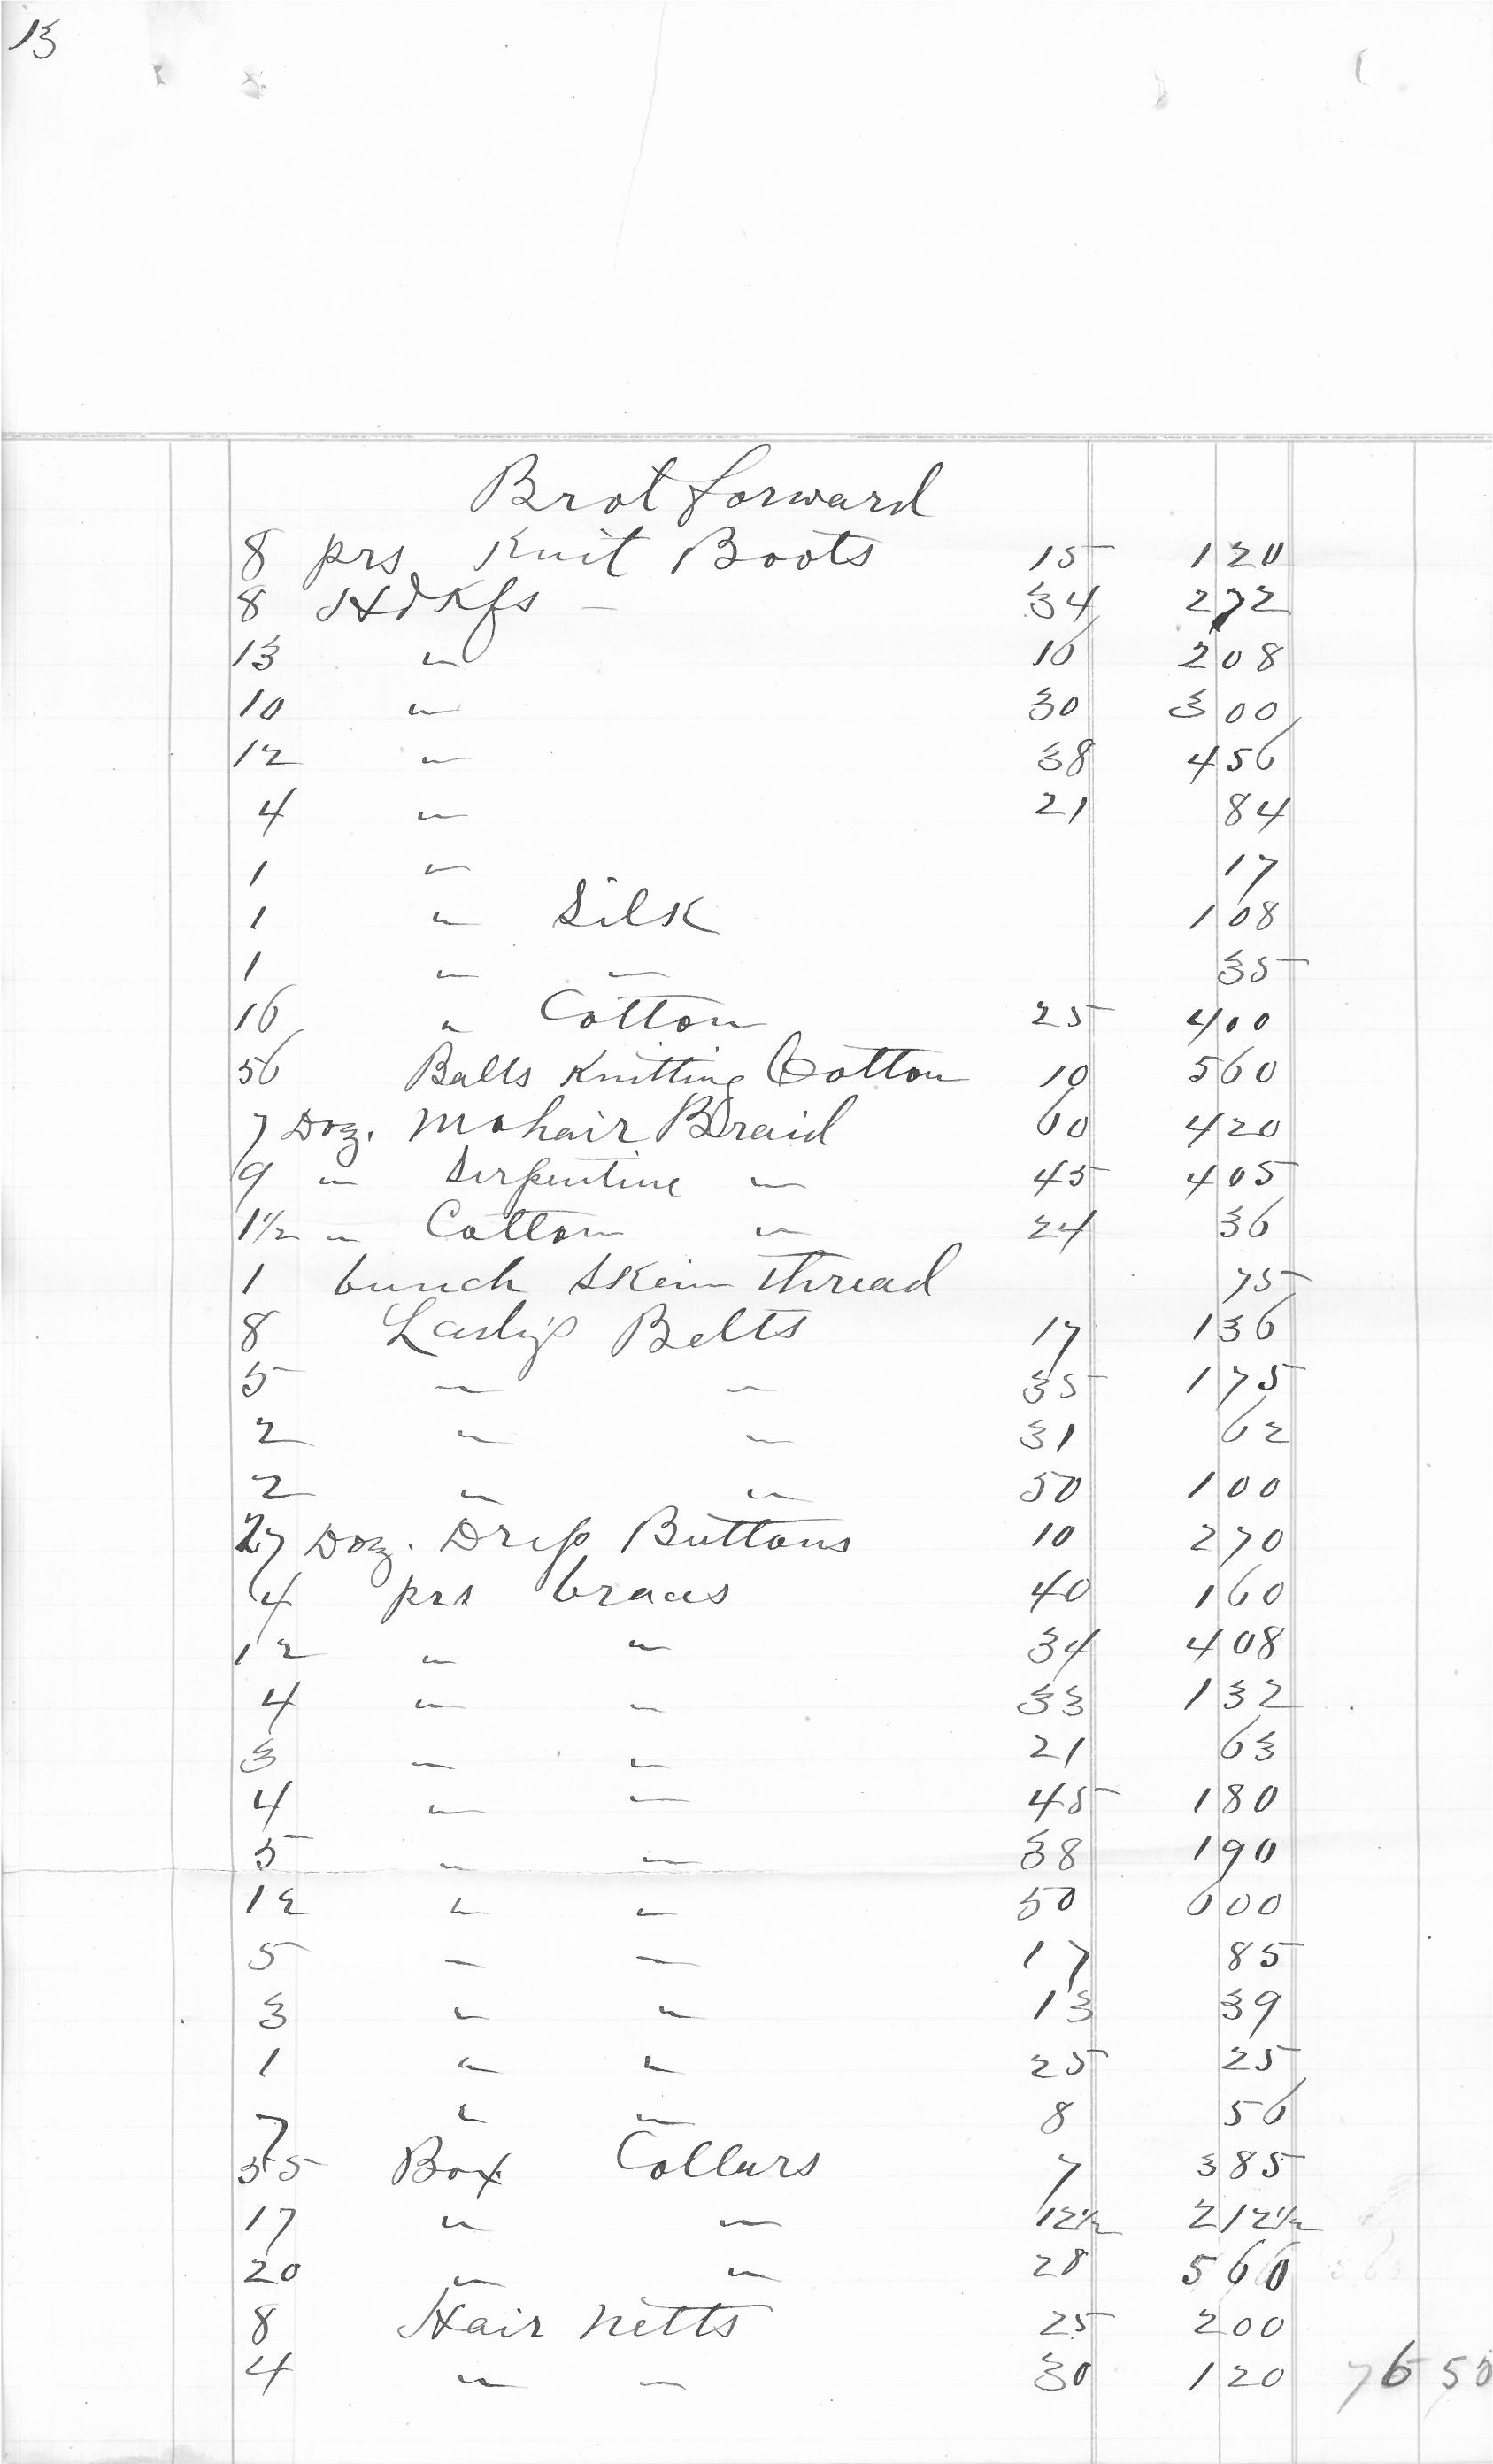 13
Brot forward
8 prs Knit Boots 15 1 20
8 Hdkfs - 34 2 72
13 " 16 2 08
10 " 30 3 00
12 " 38 4 56
4 " 21 84
1 " 17
1 " Silk 1 08
1 " " 35
16 " Cotton 25 4 00
56 Balls Knitting Cotton 10 5 60
7 Doz. Mohair Braid 60 4 20
9 " Serpentine " 45 4 05
1½ " Cotton " 24 36
1 bunch Skein thread 75
8 Lady's Belts 17 1 36
5 " " 35 1 75
2 " " 31 62
2 " " 50 1 00
27 Doz. Dress Buttons 10 2 70
4 prs braces 40 1 60
12 " " 34 4 08
4 " " 33 1 32
3 " " 21 63
4 " " 45 1 80
5 " " 38 1 90
12 " " 50 6 00
5 " " 17 85
3 " " 13 39
1 " " 25 25
7 " " 8 56
55 Box Collars 7 3 85
17 " " 12½ 2 12½
20 " " 28 5 60
8 Hair netts 25 2 00
4 " " 30 1 20 76 55